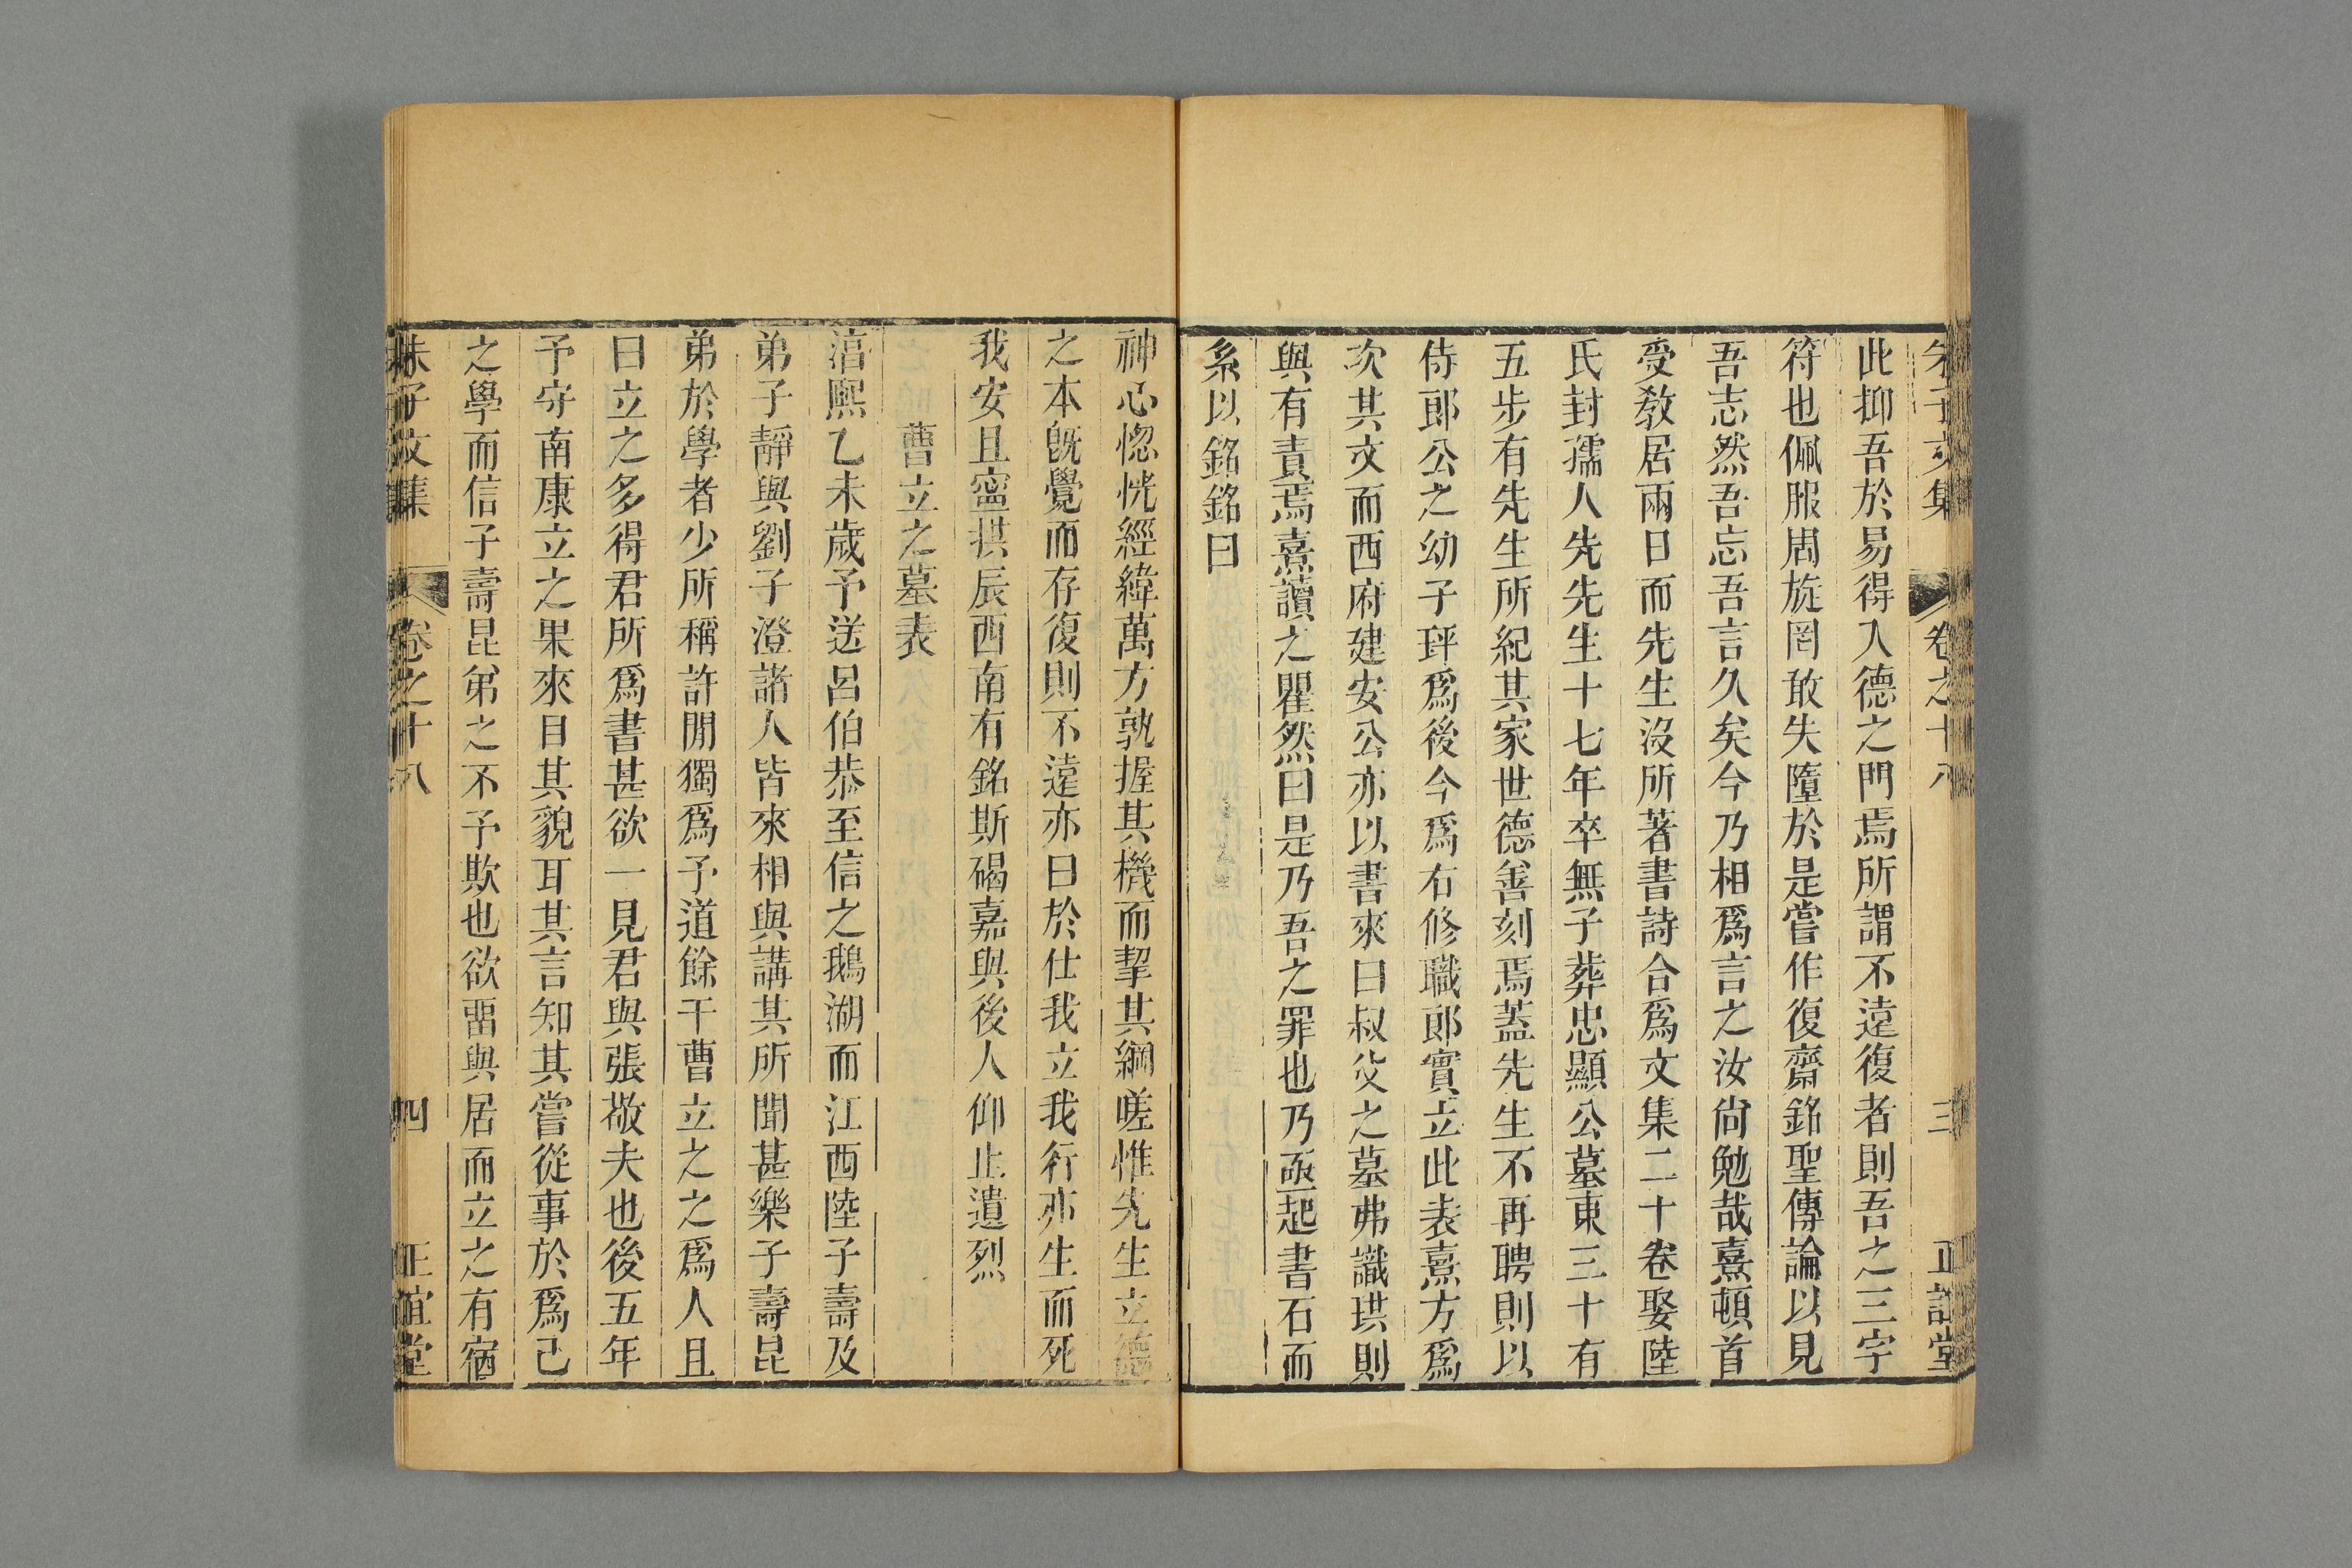 朱子文集 卷之十八 三 正誼堂
此抑吾於易得入德之門焉所謂不遠復者則吾之三字
符也佩服周旋罔敢失墮於是嘗作復齋銘聖傳論以見
吾志然吾忘吾言久矣今乃相爲言之汝尙勉哉熹頓首
受敎居兩日而先生沒所著書詩合爲文集二十卷娶陸
氏封孺人先先生十七年卒無子葬忠顯公墓東三十有
五步有先生所紀其家世德善刻焉蓋先生不再聘則以
侍郞公之幼子玶爲後今爲右修職郞實立此表熹方爲
次其文而西府建安公亦以書來曰叔父之墓弗識珙則
與有責焉熹讀之瞿然曰是乃吾之罪也乃亟起書石而
系以銘銘曰
神心惚恍經緯萬方孰握其機而挈其綱嗟惟先生立德
之本旣覺而存復則不遠亦曰於仕我立我行亦生而死
我安且寧拱辰西南有銘斯碣嘉與後人仰止遺烈
曹立之墓表
湻熙乙未歲予送呂伯恭至信之鵝湖而江西陸子壽及
弟子靜與劉子澄諸人皆來相與講其所聞甚樂子壽昆
弟於學者少所稱許閒獨爲予道餘干曹立之之爲人且
曰立之多得君所爲書甚欲一見君與張敬夫也後五年
予守南康立之果來目其貌耳其言知其嘗從事於爲己
之學而信子壽昆弟之不予欺也欲畱與居而立之有宿
朱子文集 卷之十八 四 正誼堂